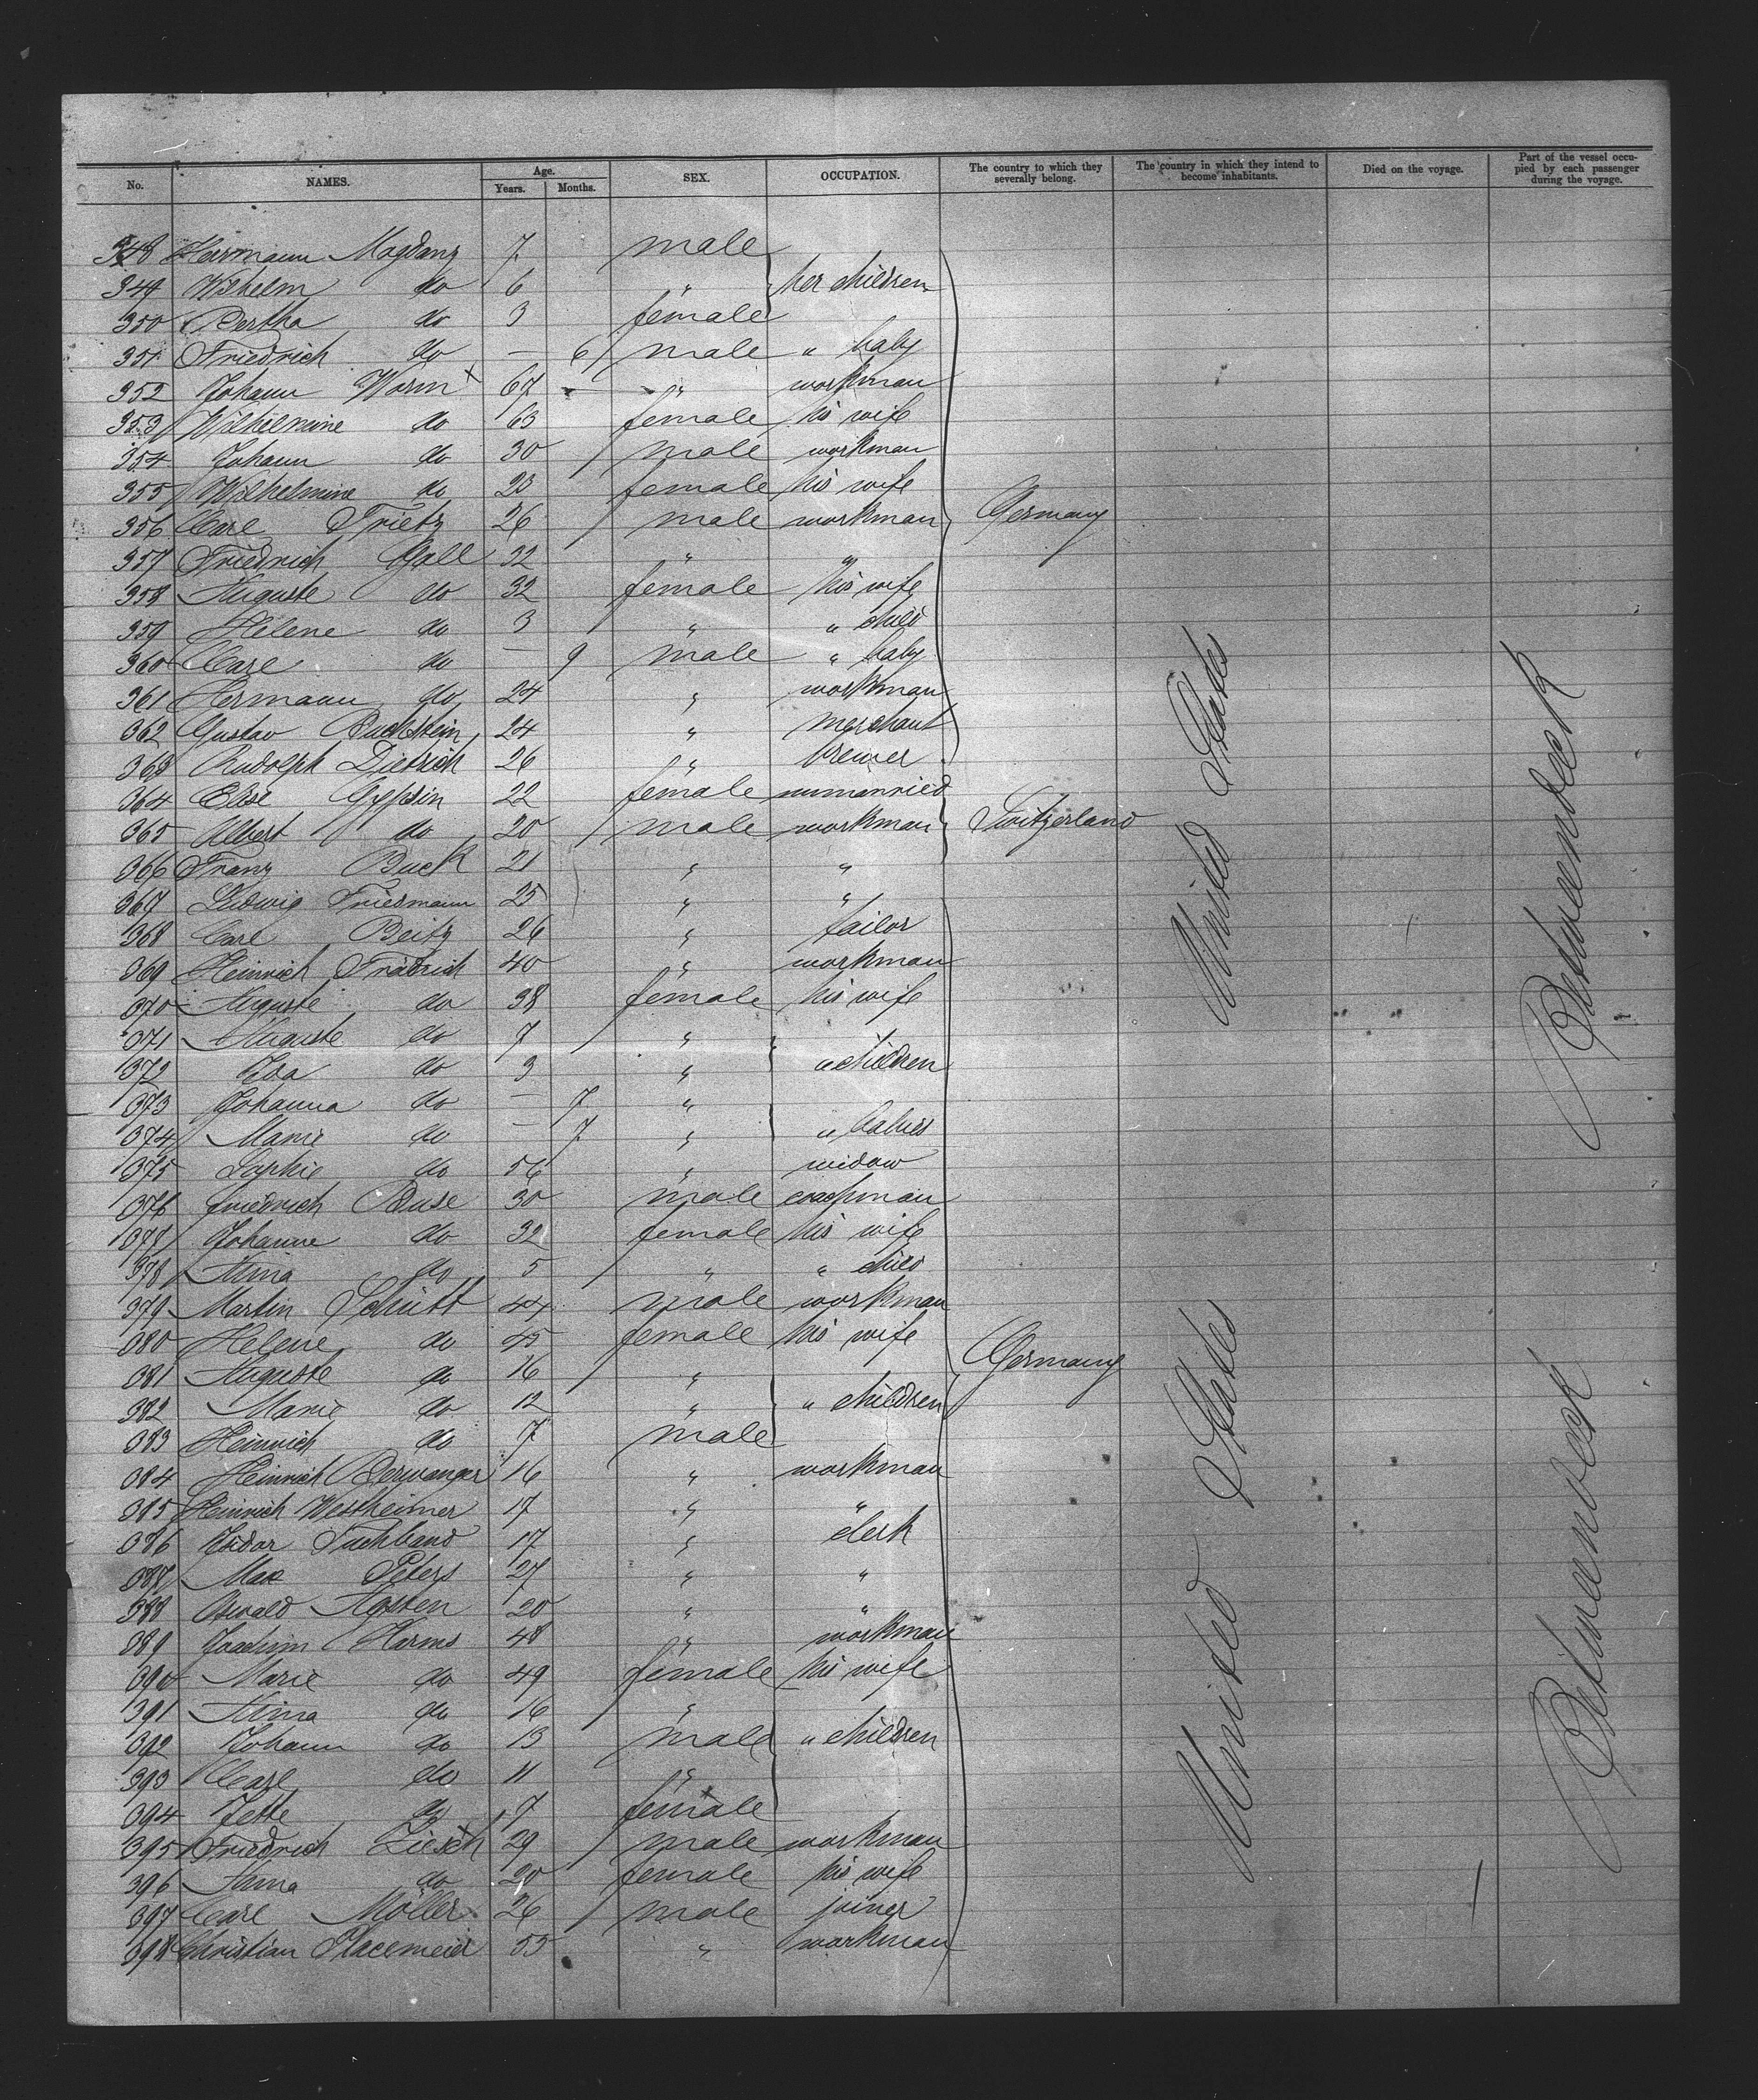 No. NAMES. Age. Years. Months. SEX. OCCUPATION. The country to which they severally belong. The country in which they intend to become inhabitants. Died on the voyage. Part of the vessel occupied by each passenger during the voyage.
348 Hermann Magdanz 7 male
349 Wilhelm do 6 " her children
350 Bertha do 3 female
351 Friedrich do — 6 male " baby
352 Johann Worm x 67 " workman
353 Wilhelmine do 63 female his wife
354 Johann do 30 male workman
355 Wilhelmine do 23 female his wife
356 Carl Trietz 26 male workman Germany
357 Friedrich Gall 32 " "
358 Auguste do 32 female his wife
359 Helene do 3 " " child
360 Carl do — 9 male " baby
361 Hermann do 24 " workman
362 Gustav Buchstein 24 " merchant
363 Rudolph Dietrich 26 " brewer
364 Elise 22 female unmarried
365 Albert do 20 male workman Switzerland
366 Franz Buck 21 " "
367 Ludwig Friesmann 25 " "
368 Carl Beitz 26 " tailor
369 Heinrich Frädrich 40 " workman
370 Auguste do 38 female his wife
371 Auguste do 7 "
372 Ida do 3 " " children
373 Johanna do — 7 "
374 Marie do — 7 " " babies
375 Sophie do 56 " widow
376 Friedrich Buse 30 male coachman
377 Johanne do 32 female his wife
378 Anna do 5 " " child
379 Martin Schütt 44 male workman
380 Helene do 45 female his wife
381 Auguste do 16 " Germany
382 Marie do 12 " " children
383 Heinrich do 7 male
384 Heinrich Berwanger 16 " workman
385 Heinrich Westheimer 17 " "
386 Isidor 17 " clerk
387 Max Peters 27 " "
388 Oswald Agsten 20 " "
389 Joachim Harms 48 " workman
390 Marie do 49 female his wife
391 Anna do 16 "
392 Johann do 13 male " children
393 Carl do 11 "
394 Jette do 7 female
395 Friedrich Ziesch 29 male workman
396 Anna do 20 female his wife
397 Carl Möller 26 male joiner
398 Christian Placemeier 55 " workman
United States
United States
Betweendeck
Betweendeck